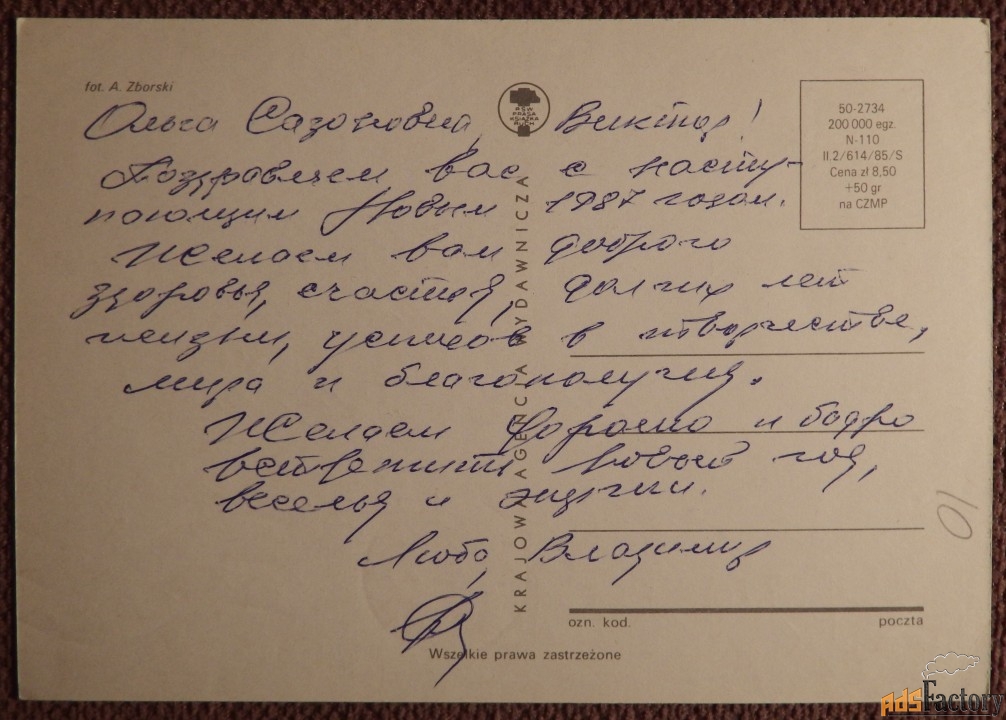 fot. A. Zborski
RSW
PRASA
KSIĄŻKA
RUCH
50-2734
200 000 egz.
N-110
II.2/614/85/S
Cena zł 8,50
+50 gr
na CZMP
Ольга Сазоновна, Виктор!
Поздравляем вас с насту-
пающим Новым 1987 годом.
Желаем вам доброго
здоровья, счастья, долгих лет
жизни, успехов в творчестве,
мира и благополучия.
Желаем хорошо и бодро
встретить Новый год,
веселья и энергии.
Люба, Владимир
KRAJOWA AGENCJA WYDAWNICZA
ozn. kod.
poczta
Wszelkie prawa zastrzeżone
10
AdsFactory